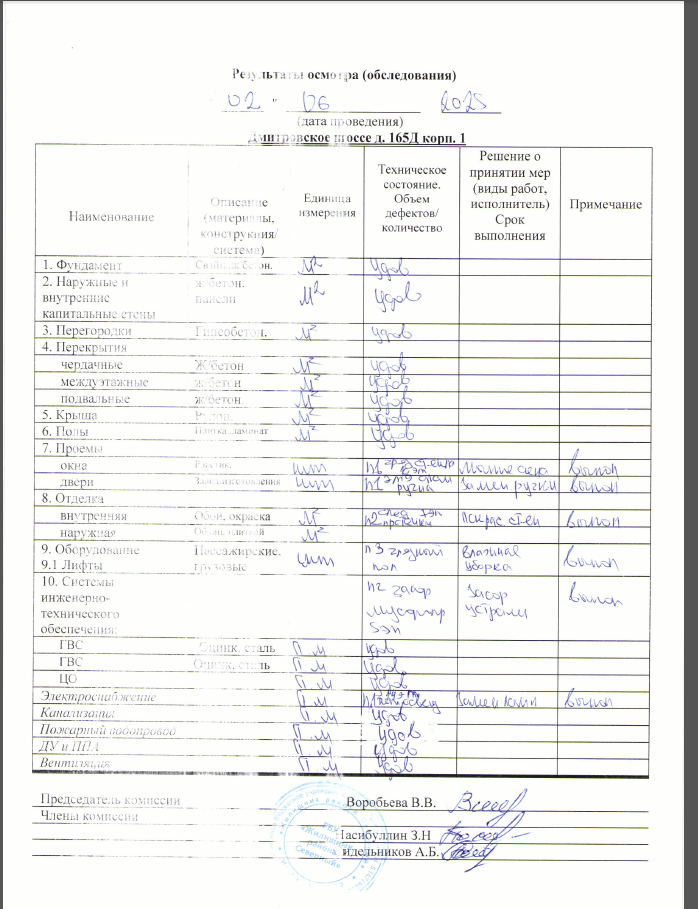 Результаты осмотра (обследования)
02 " 06 2025
(дата проведения)
Дмитровское шоссе д. 165Д корп. 1
Наименование
Описание (материалы, конструкция/ система)
Единица измерения
Техническое состояние. Объем дефектов/ количество
Решение о принятии мер (виды работ, исполнитель) Срок выполнения
Примечание
1. Фундамент бетон. м² удов
2. Наружные и внутренние капитальные стены ж/бетон. панели м² удов
3. Перегородки Гипсобетон. м² удов
4. Перекрытия
чердачные Ж/бетон м² удов
междуэтажные ж/бетон м² удов
подвальные ж/бетон м² удов
5. Крыша м² удов
6. Полы Плитка ламинат м² удов
7. Проемы
окна шт п6 окна выпол
двери шт п1 ручки замен ручки выпол
8. Отделка
внутренняя Обои, окраска м² п2 ст-ен выпол
наружная м²
9. Оборудование
9.1 Лифты Пассажирские, грузовые шт п3 грязный пол влажная уборка выпол
10. Системы инженерно-технического обеспечения: п2 засор 5 эт засор устранен выпол
ГВС Оцинк. сталь П м удов
ГВС Оцинк. сталь П м удов
ЦО П м удов
Электроснабжение П м п1 замен выпол
Канализация П м удов
Пожарный водопровод П м удов
ДУ и ППА П м удов
Вентиляция П м удов
Председатель комиссии Воробьева В.В.
Члены комиссии
Насибуллин З.Н
идельников А.Б.
ГБУ
«Жилищник
района
Северный»